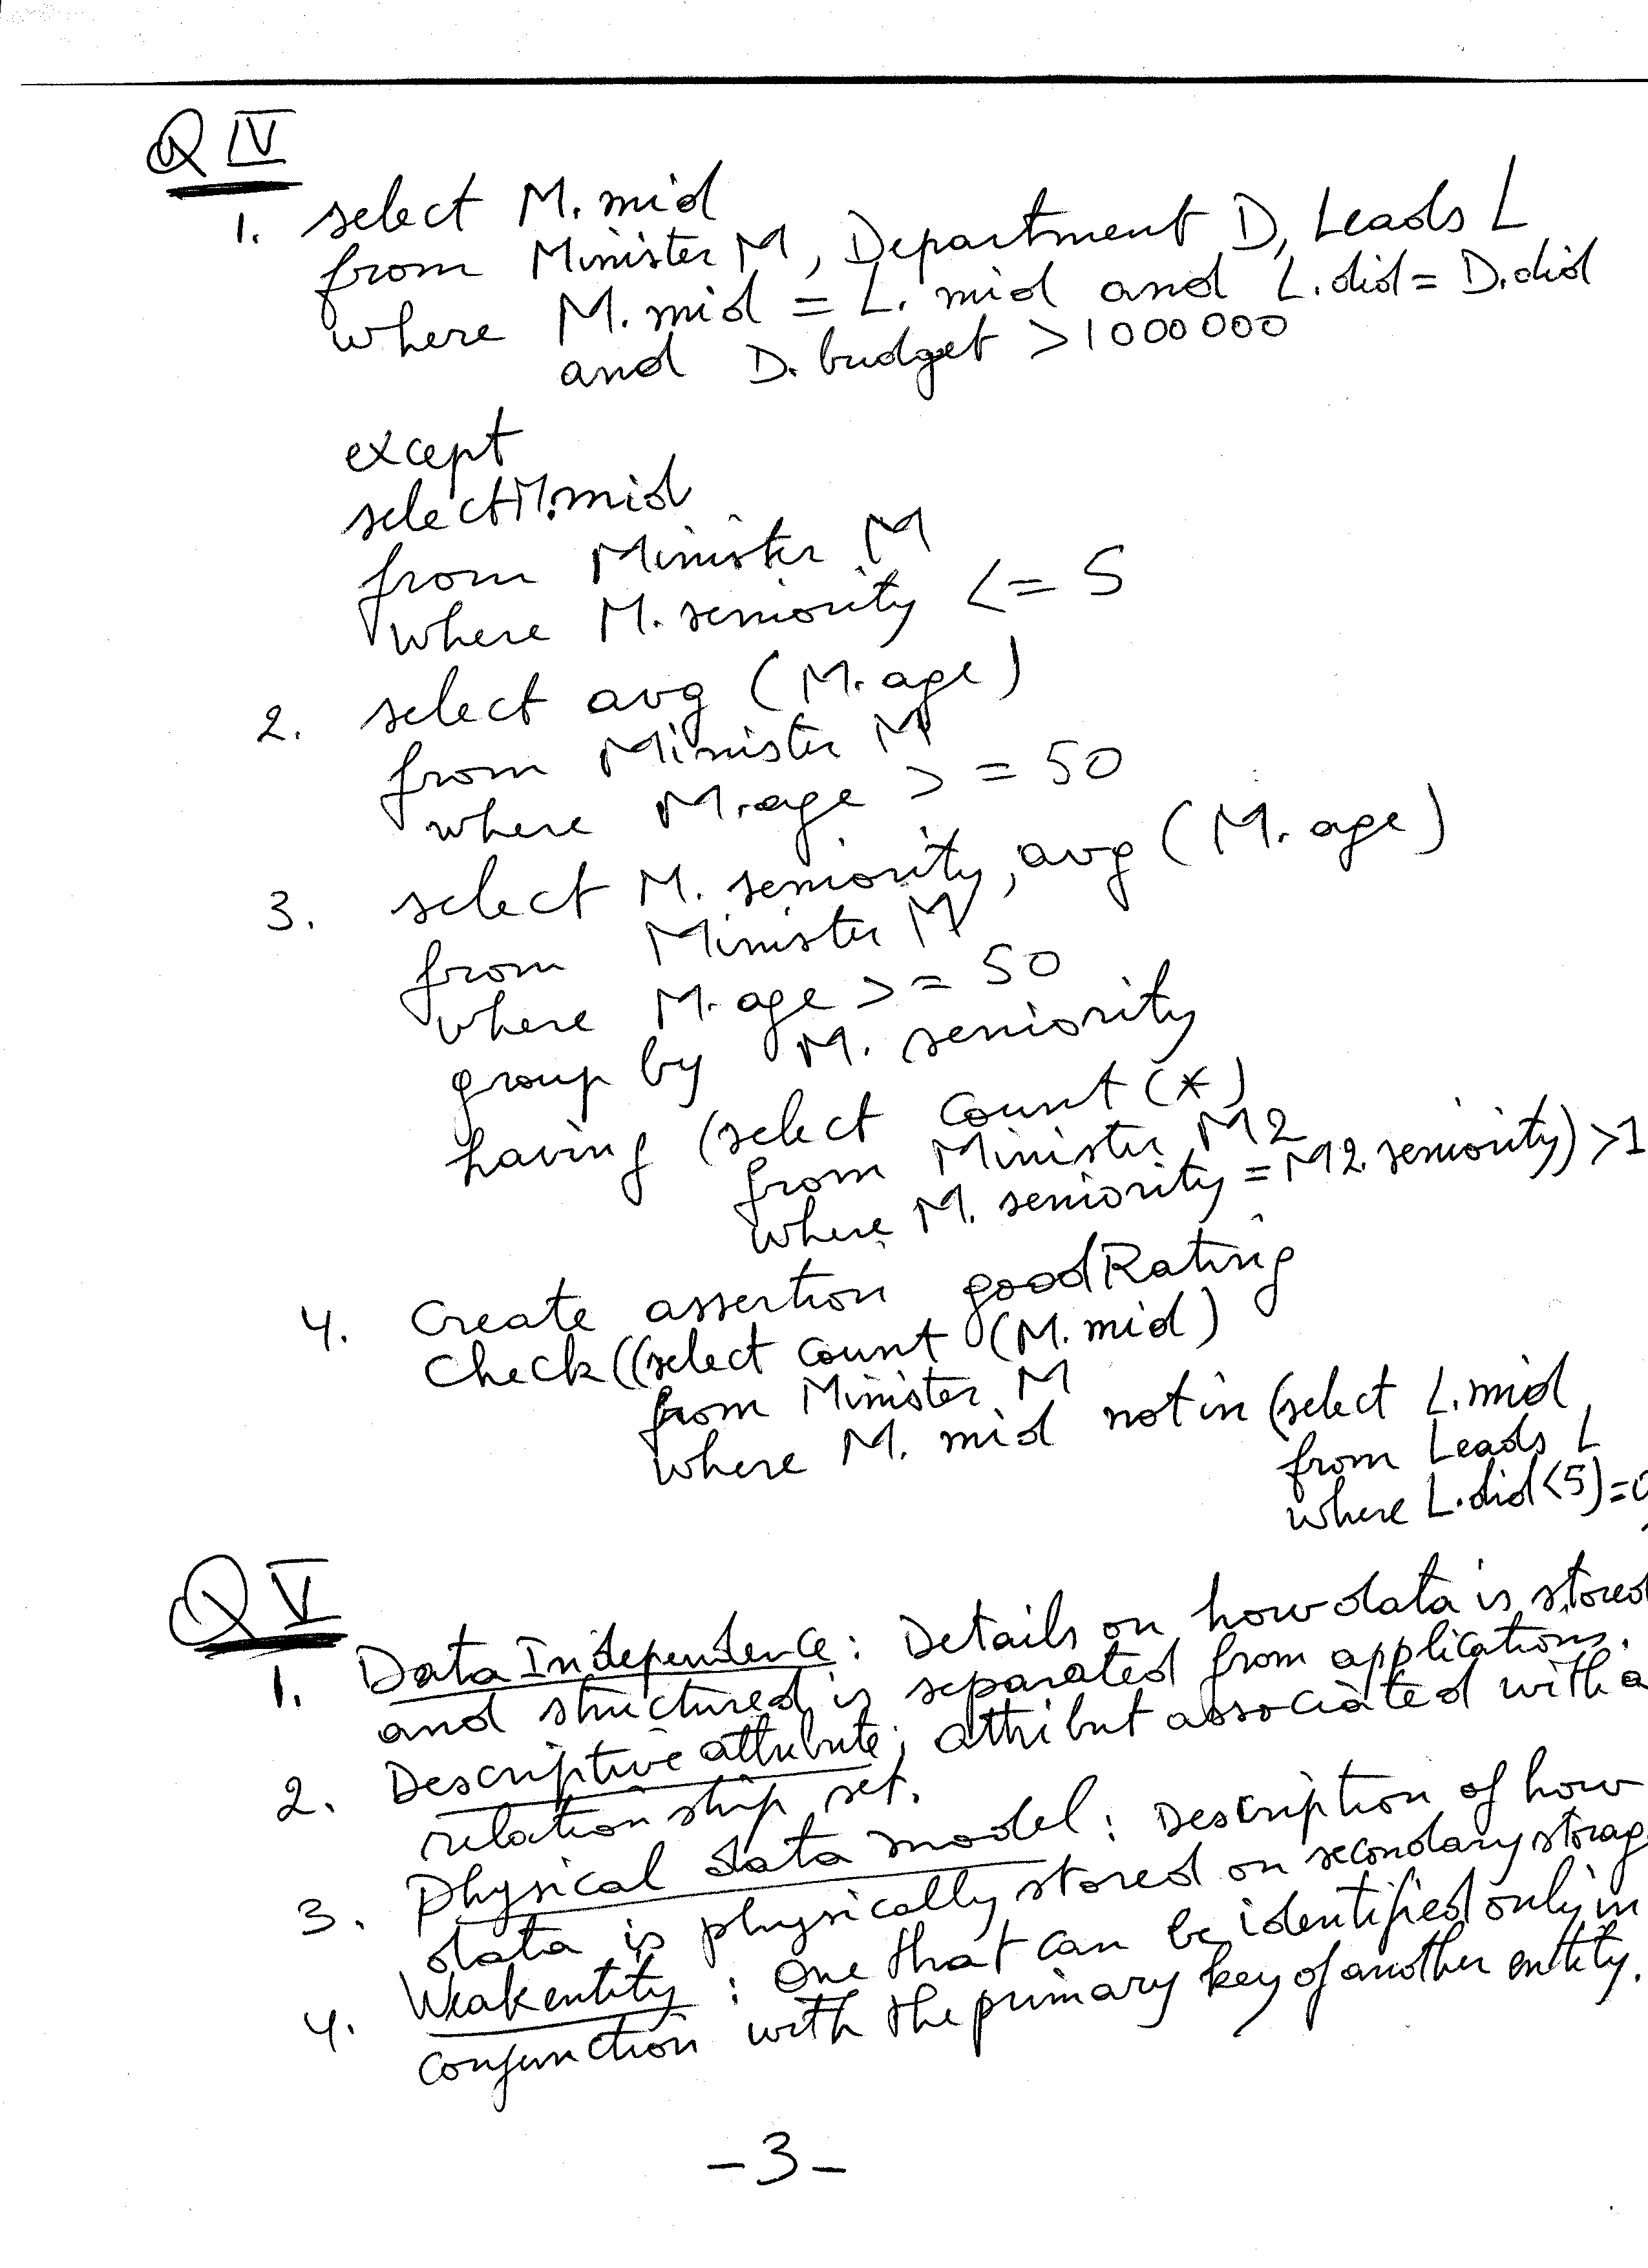 Q IV
1. select M.mid
from Minister M, Department D, Leads L
where M.mid = L.mid and L.did = D.did
and D.budget > 1000000
except
select M.mid
from Minister M
where M.seniority <= 5
2. select avg (M.age)
from Minister M
where M.age >= 50
3. select M.seniority, avg (M.age)
from Minister M
where M.age >= 50
group by M.seniority
having (select count (*)
from Minister M2
where M.seniority = M2.seniority) > 1
4. Create assertion goodRating
Check ((select count (M.mid)
from Minister M
where M.mid not in (select L.mid
from Leads L
where L.did < 5) = 0
Q V
1. Data Independence : Details on how data is stored
and structured is separated from applications.
2. Descriptive attribute : attribut associated with a
relationship set.
3. Physical data model : Description of how
data is physically stored on secondary storag
4. Weak entity : One that can be identified only in
conjunction with the primary key of another entity.
-3-